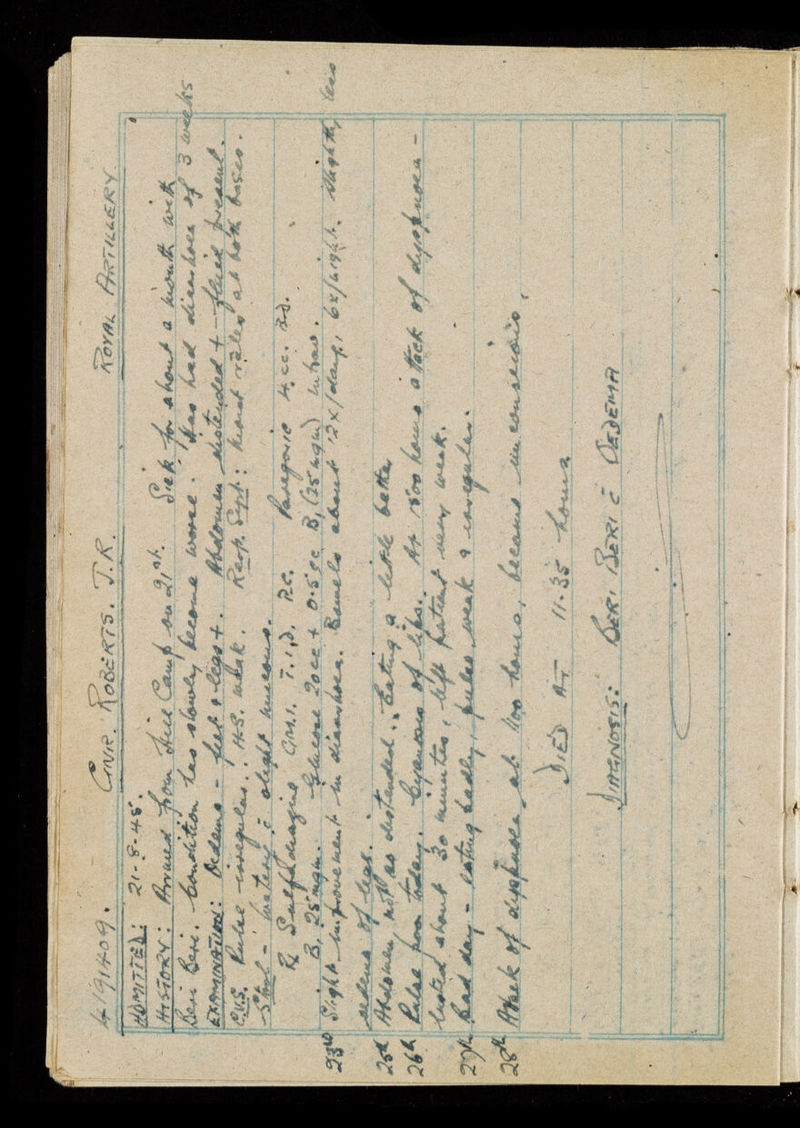 4191409. GNR. ROBERTS. J.R. ROYAL ARTILLERY.
ADMITTED: 21-8-45.
HISTORY: Arrived from Hill Camp on 21st. Sick for about a month with
Beri Beri. Condition has slowly become worse. Has had diarrhoea of 3 weeks
EXAMINATION: Oedema - feet & legs +. Abdomen distended + fluid present.
C.V.S. Pulse irregular. H.S. weak. Resp. Syst: moist râles at both bases.
Stool - watery c̄ slight mucous.
Rx Sulphadiazine GM.1. T.I.D. P.C. Paregoric 4 cc. B.D.
B1 25 mgm. Glucose 20 cc + 0.5 cc B1 (25 mgm) intrav.
23rd Slight improvement in diarrhoea. Bowels about 12x/day, 6x/night. Slightly less
oedema of legs.
25th Abdomen not as distended. Eating a little better
26th Pulse poor today. Cyanosis of lips. At 1500 hours attack of dyspnoea -
lasted about 30 minutes, left patient very weak.
27th Bad day - eating badly, pulse weak & irregular.
28th Attack of dyspnoea at 1100 hours, became unconscious.
DIED AT 11.35 hours
DIAGNOSIS: BERI BERI c̄ OEDEMA